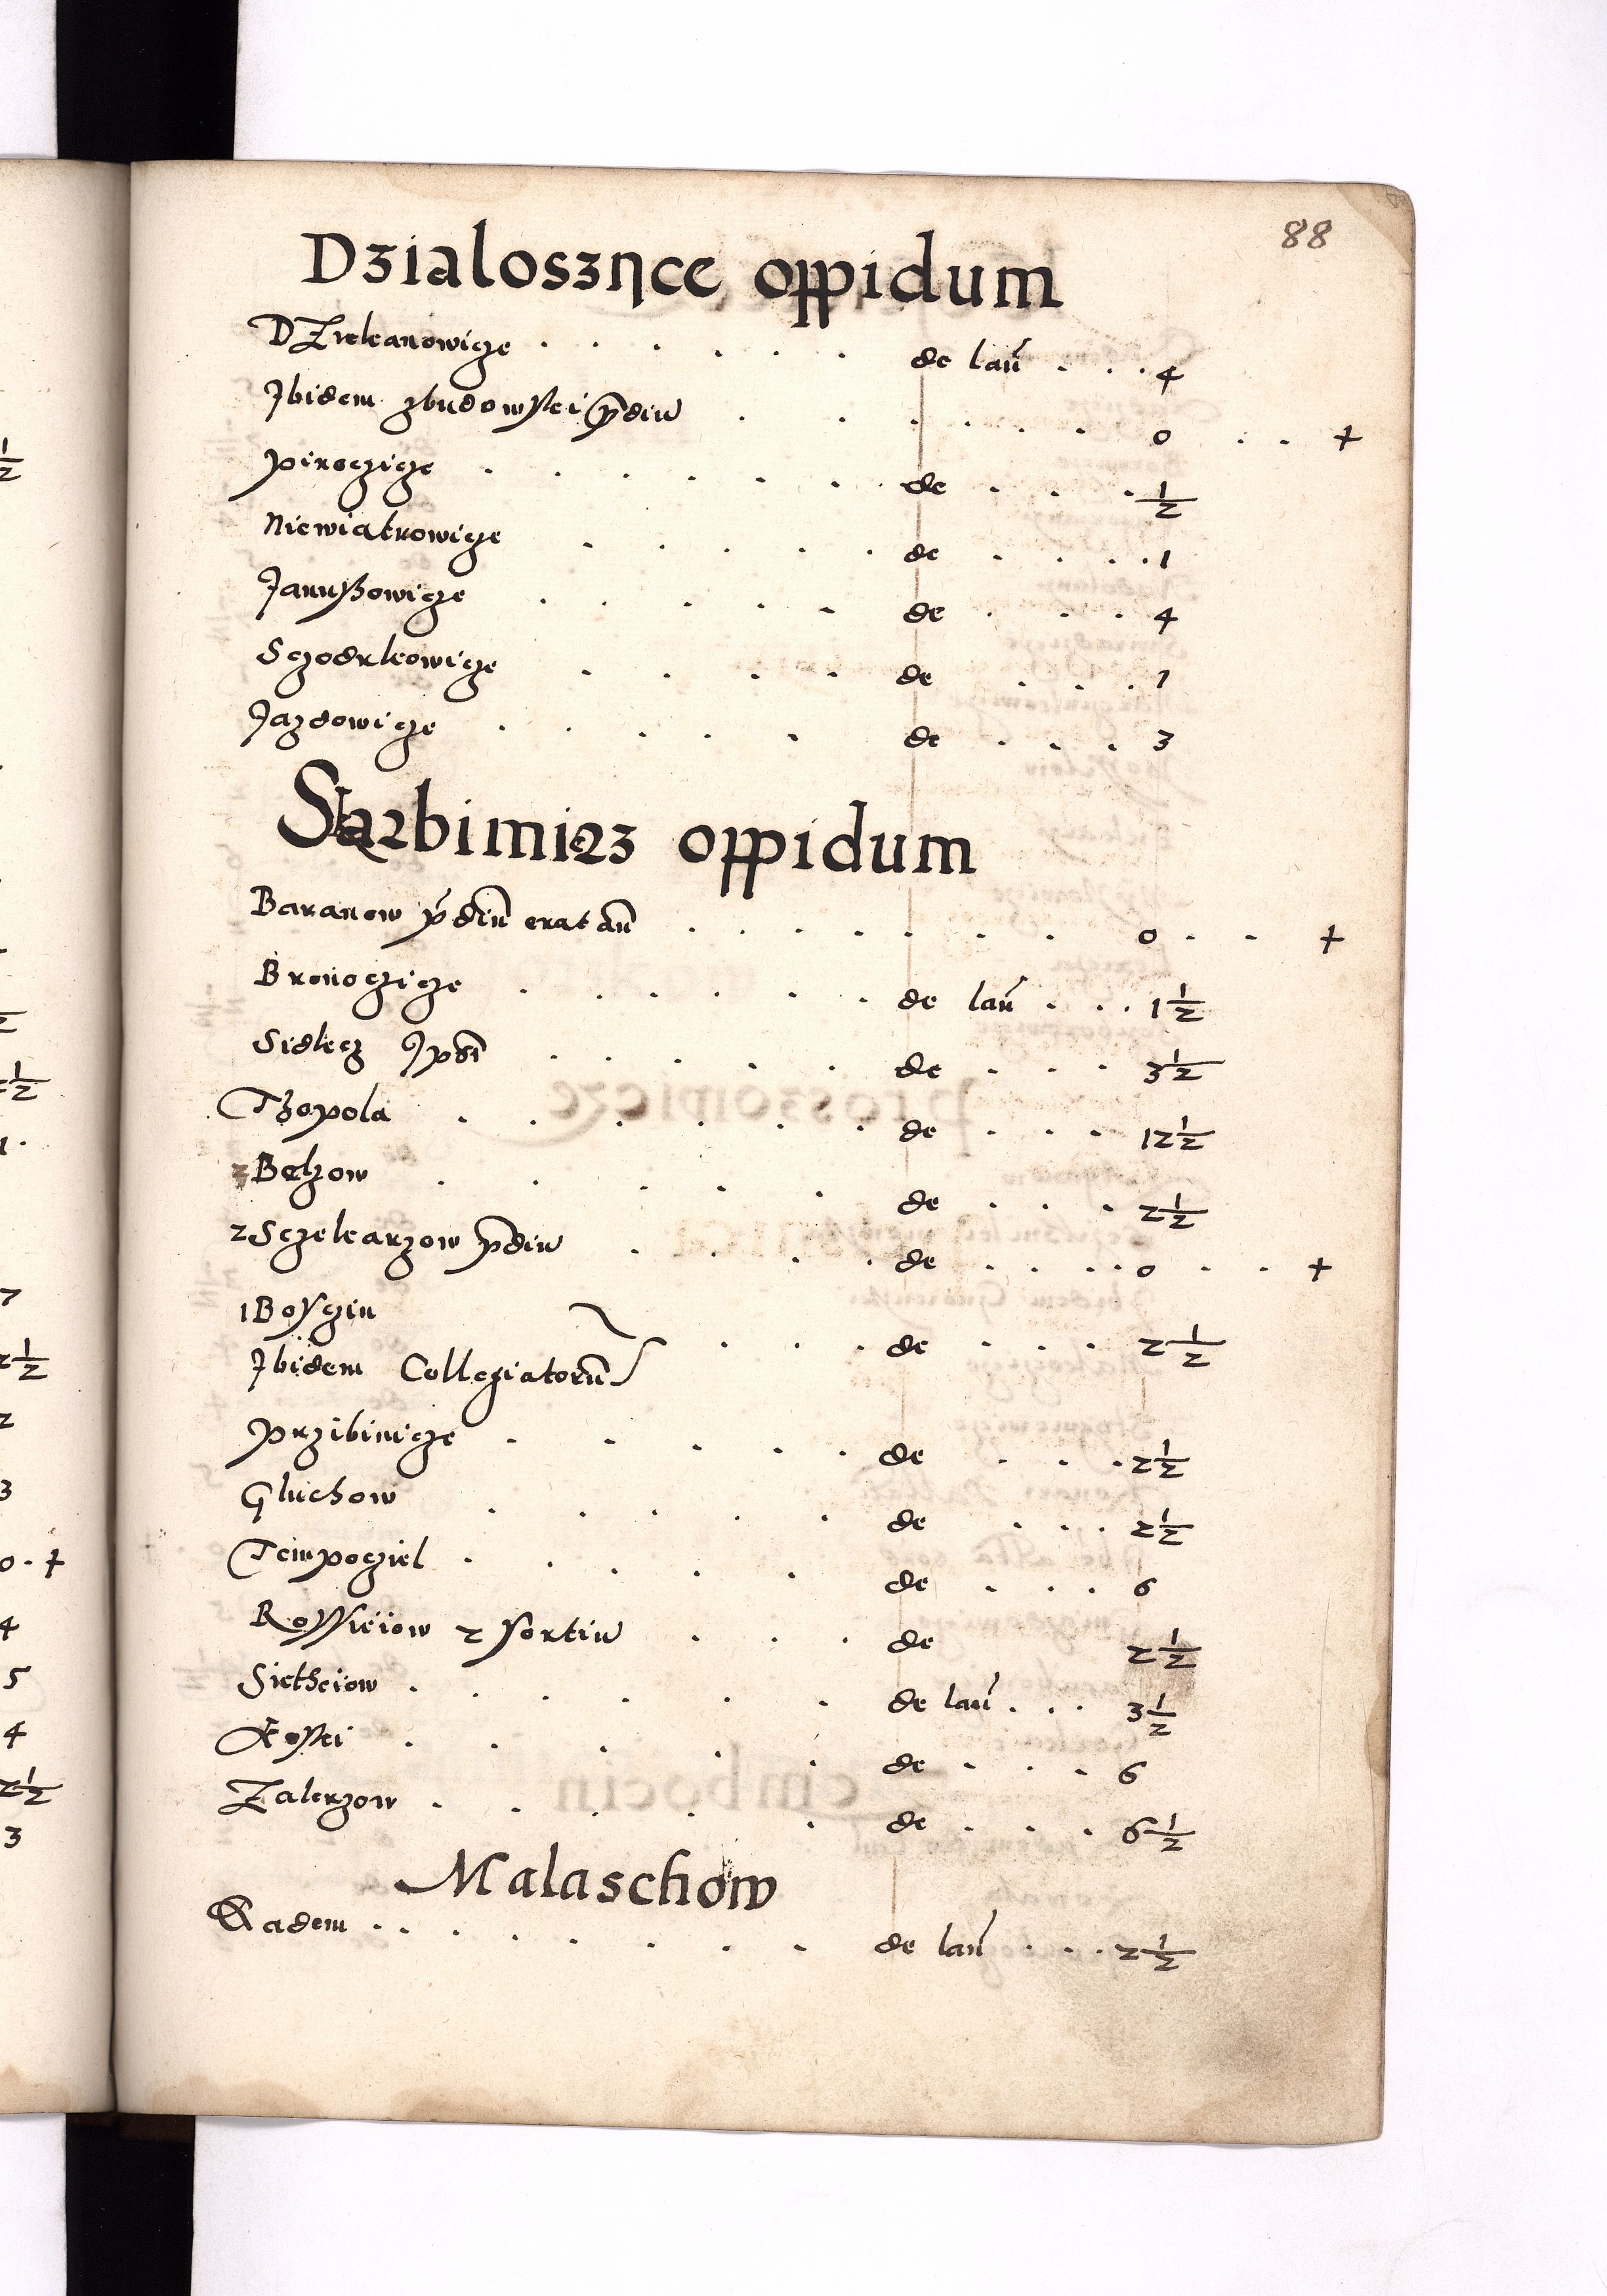 88
Dzialoszyce oppidum
DZiekanowicze . . . . . . de lan̄ . . . 4
Ibidem zbudowskei p̄diū . . . . . . 0 . . +
piroczicze . . . . . . de . . . ½
Niewiatrowicze . . . . . de . . . 1
Janußowicze . . . . . de . . . 4
Sczodrkowicze . . . . de . . . 1
Jazdowicze . . . . . de . . . 3
Skarbimirz oppidum
Baranow p̄diū erat an̄ . . . . . . . 0 . . +
Bronoczicze . . . . . . de lan̄ . . . 1½
Sidlecz Ip̄si . . . . . de . . . 3½
Thopola . . . . . . de . . . 12½
2 Belzow . . . . . de . . . 2½
2 Sczekarzow p̄diū . . . . de . . . . 0 . . +
1 Bosczin
Ibidem Collegiatorū . . . de . . . 2½
przibinicze . . . . . de . . . 2½
Gluchow . . . . . de . . . 2½
Tempocziel . . . . . de . . . 6
Rosseiow 2 sortiū . . . de 2½
Siethciow . . . . . . de lan̄ . . . 3½
Kossei . . . . . de . . . 6
Zakrzow . . . . . de . . . 6½
Malaschow
Eadem . . . . . . . . de lan̄ . . . 2½